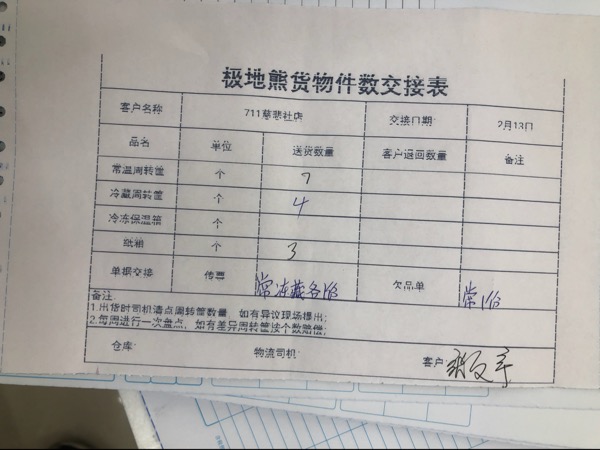 极地熊货物件数交接表
客户名称 711慈悲社店 交接日期: 2月13日
品名 单位 送货数量 客户退回数量 备注
常温周转筐 个 7
冷藏周转筐 个 4
冷冻保温箱 个
纸箱 个 3
单据交接 传票 常冻藏各1份 欠品单 常1份
备注:
1.出货时司机请点周转筐数量,如有异议现场提出;
2.每周进行一次盘点,如有差异周转筐按个数赔偿;
仓库: 物流司机: 客户: